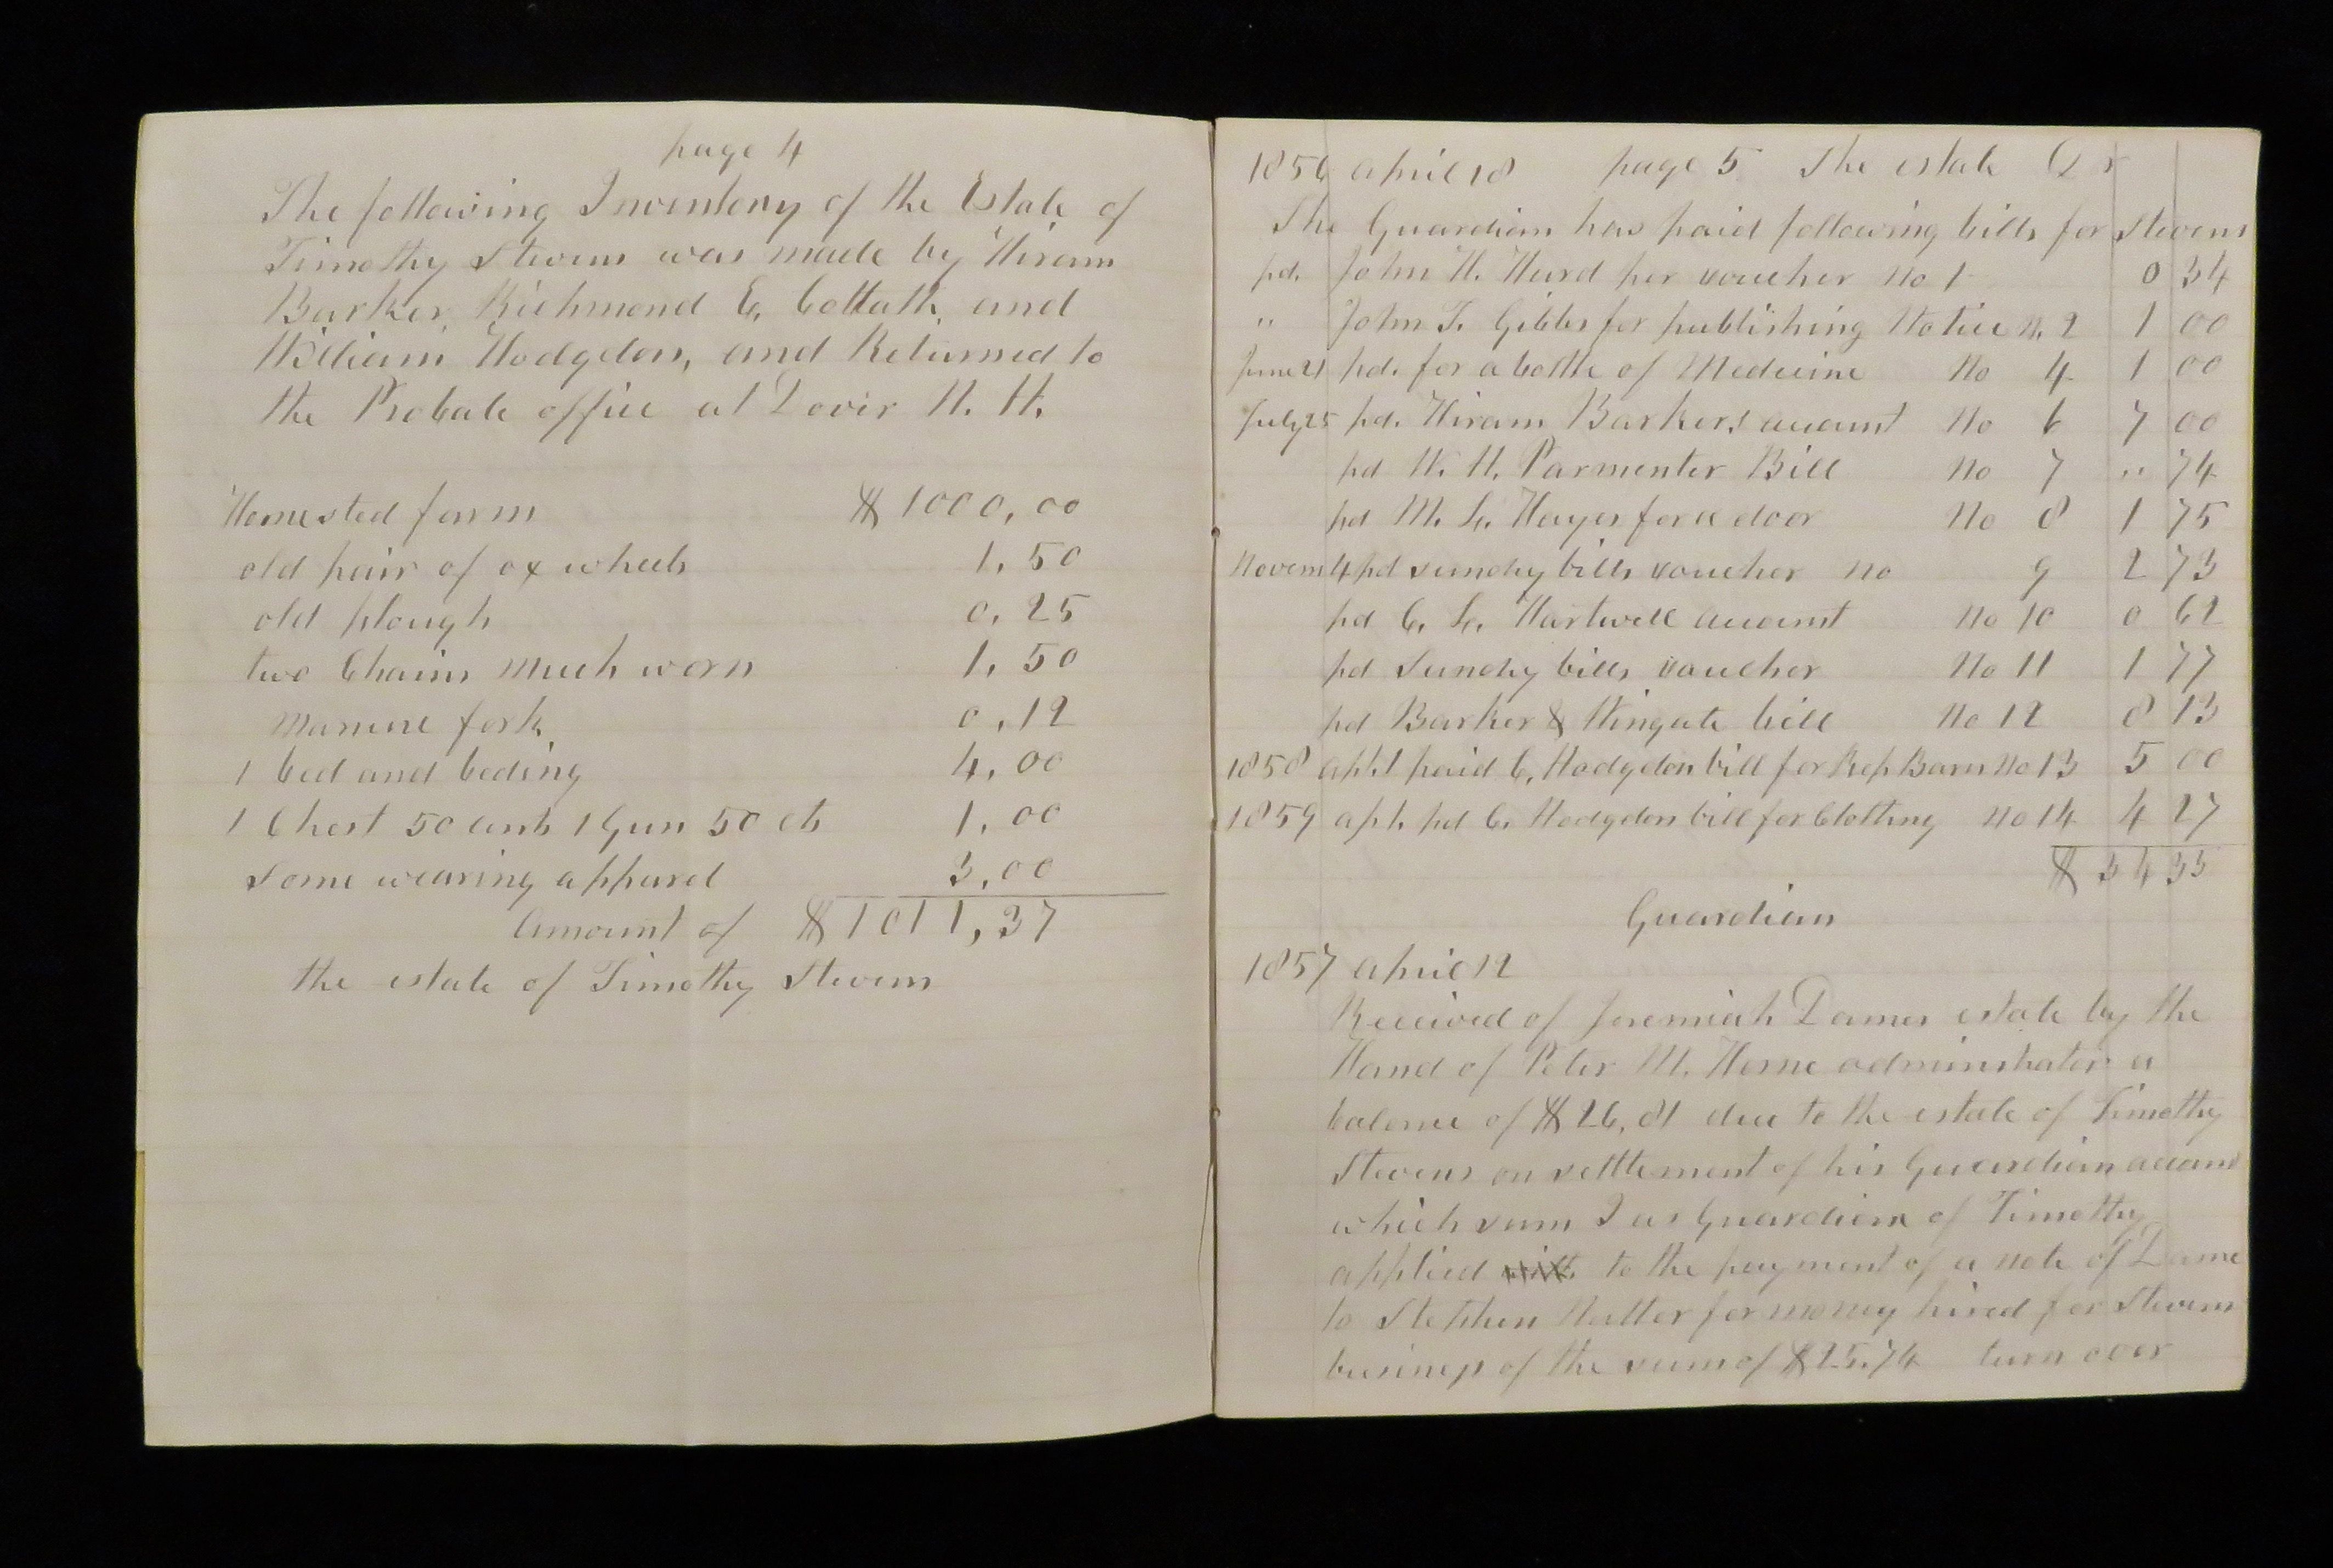 page 4
The following Inventory of the Estate of
Timothy Stevens was made by Hiram
Barker, Richmond E, and
William Hodgdon, and Returned to
the Probate office at Dover N. H.
Homested farm $1000,00
old pair of ox wheels 1,50
old plough 0,25
two Chains much worn 1,50
manure fork 0,12
1 bed and beding 4,00
1 Chest 50 cents 1 Gun 50 cts 1,00
Some wearing apparel 3,00
Amount of $1011,37
the estate of Timothy Stevens
1856 april 18 page 5 The estate Dr
The Guardian has paid following bills for Stevens
pd. John H. Hurd per voucher No 1 0 34
" John T. Gibbs for publishing Notice N. 2 1 00
June 21 pd. for a bottle of Medicine No 4 1 00
July 25 pd. Hiram Barkers account No 6 7 00
pd H. H. Parmenter Bill No 7 " 74
pd M. L. Hayes for a door No 8 1 75
Novem 4 pd sundry bills voucher no 9 2 73
pd C. L. Hartwell account No 10 0 62
pd Sundry bills voucher No 11 1 77
pd Barker & Wingate bill No 12 8 13
1858 apl. 1 paid C, Hodgdon bill for Rep Barn No 13 5 00
1859 apl. pd C. Hodgdon bill for Clothing No 14 4 27
$ 34 35
Guardian
1857 april 12
Received of Jeremiah Dames estate by the
Hand of Peter M. Horne adminstrator a
balance of $26,81 due to the estate of Timothy
Stevens on settlement of his Guardian account
which sum I as Guardian of Timothy
applied to the payment of a note of Dame
to Stephen Nutter for money hired for Stevens
business of the sum of $25.74 turn over